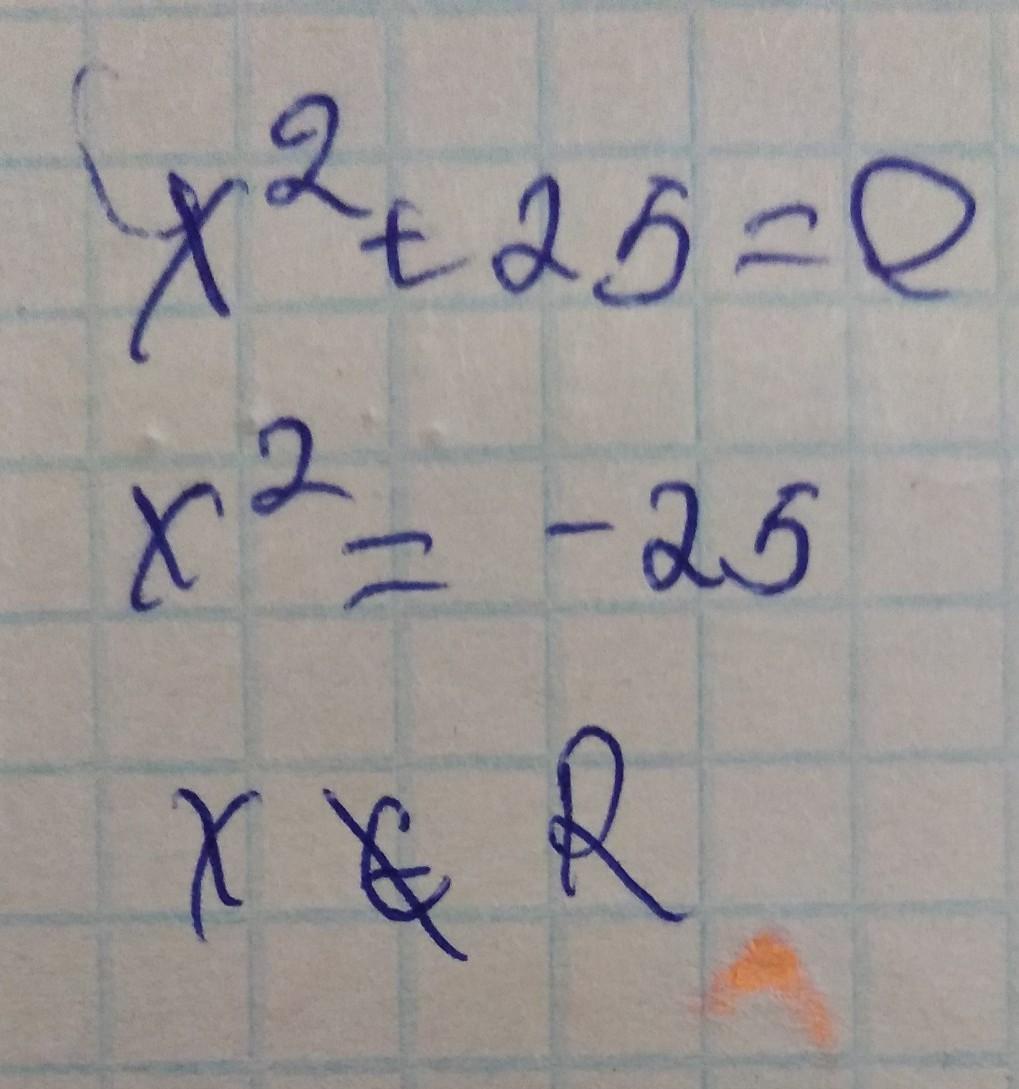 x² + 25 = 0
x² = - 25
x ∉ R